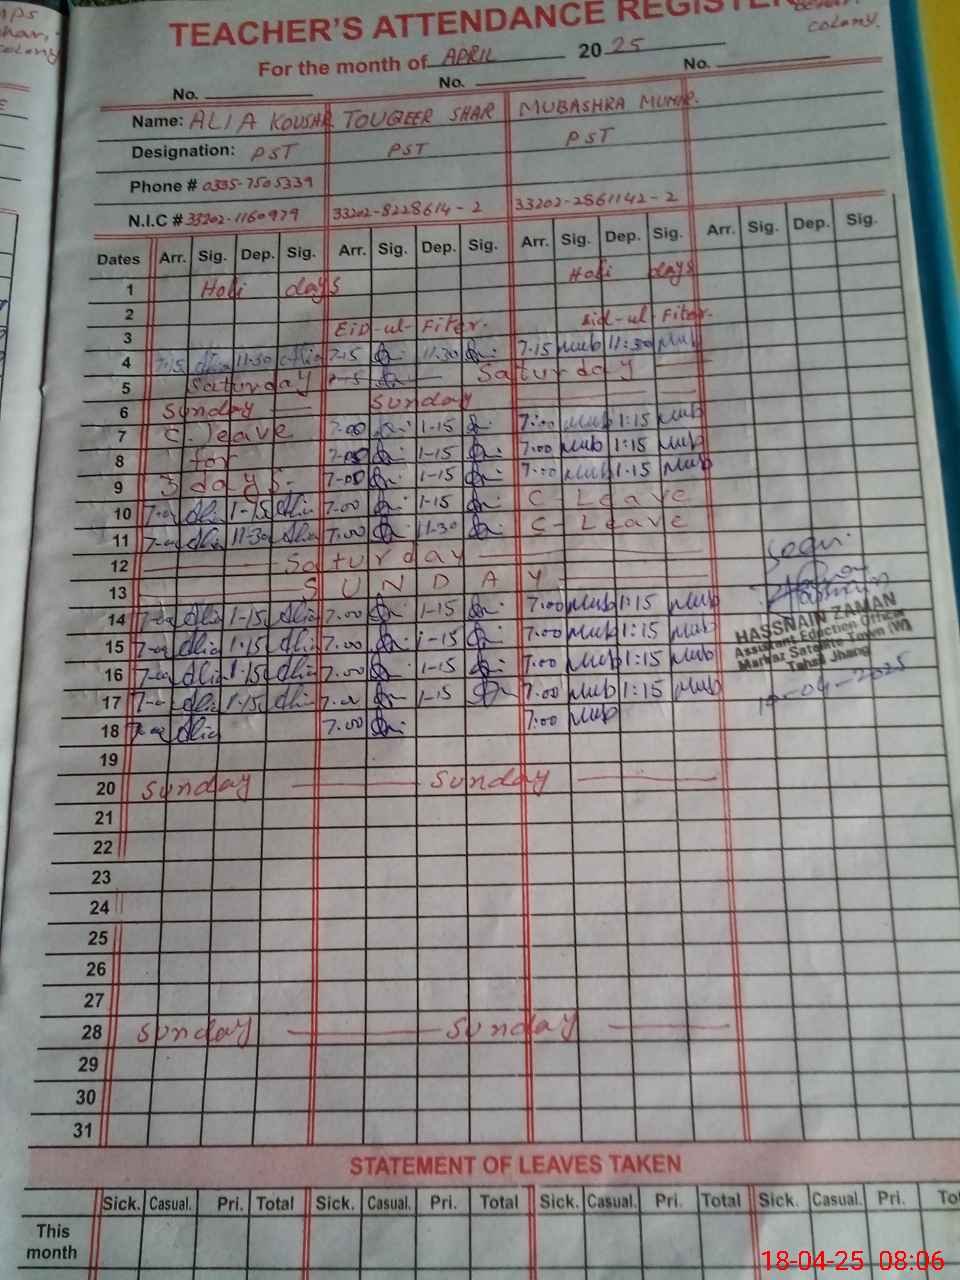 TEACHER'S ATTENDANCE REGISTER
colony.
For the month of APRIL 2025
No. No. No.
Name: ALIA KOUSAR TOUQEER SHAR MUBASHRA MUNIR.
Designation: PST PST PST
Phone # 0335-7505339
N.I.C # 33202-1160979 33202-8228614-2 33202-2861142-2
Dates Arr. Sig. Dep. Sig. Arr. Sig. Dep. Sig. Arr. Sig. Dep. Sig. Arr. Sig. Dep. Sig.
1 Holi days Holi days
2
3 Eid-ul-Fiter. Eid-ul Fiter.
4 7:15 Alia 11-30 Alia 7-15 11-30 7-15 Mub 11:30 Mub
5 Saturday Saturday
6 Sunday Sunday
7 C. leave 7.00 1-15 7:00 Mub 1:15 Mub
8 for 7-00 1-15 7:00 Mub 1:15 Mub
9 3 days. 7-00 1-15 7:00 Mub 1:15 Mub
10 7-00 Alia 1-15 Alia 7-00 1-15 C-Leave
11 7-00 Alia 11-30 Alia 7.00 11-30 C-Leave
12 Saturday
13 SUNDAY
14 7-00 Alia 1-15 Alia 7.00 1-15 7:00 Mub 1:15 Mub
15 7-00 Alia 1-15 Alia 7.00 1-15 7:00 Mub 1:15 Mub
16 7-00 Alia 1-15 Alia 7.00 1-15 7:00 Mub 1:15 Mub
17 7-00 Alia 1-15 Alia 7-00 1-15 7:00 Mub 1:15 Mub
18 7-00 Alia 7.00 7:00 Mub
HASSNAIN ZAMAN
Assistant Eduction Officer
Markaz Satellite Town (W)
Tehsil Jhang
-04-2025
19
20 Sunday Sunday
21
22
23
24
25
26
27
28 Sunday Sunday
29
30
31
STATEMENT OF LEAVES TAKEN
Sick. Casual. Pri. Total Sick. Casual. Pri. Total Sick. Casual. Pri. Total Sick. Casual. Pri.
This month
18-04-25 08:06